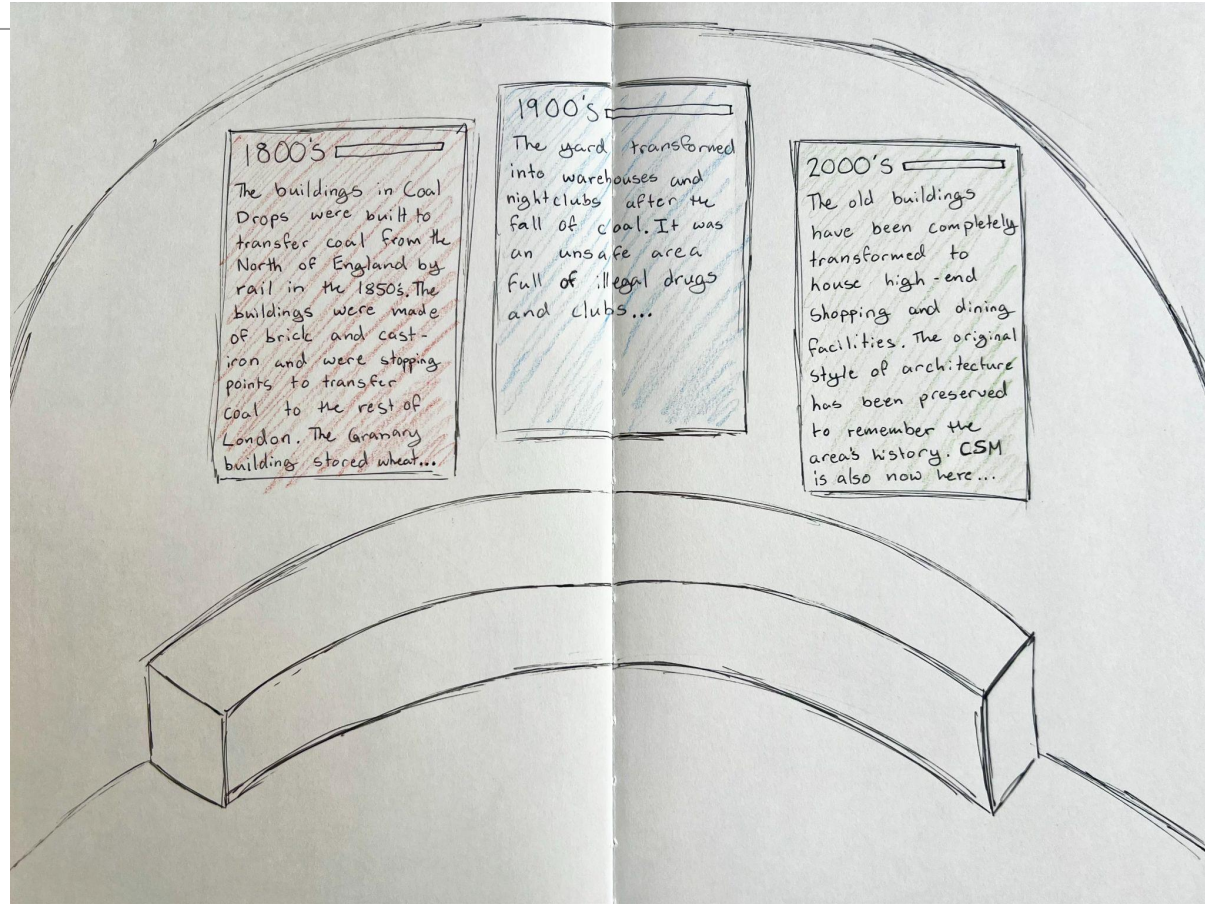 1800's
The buildings in Coal
Drops were built to
transfer coal from the
North of England by
rail in the 1850's. The
buildings were made
of brick and cast-
iron and were stopping
points to transfer
coal to the rest of
London. The Granary
building stored wheat...
1900's
The yard transformed
into warehouses and
nightclubs after the
fall of coal. It was
an unsafe area
full of illegal drugs
and clubs...
2000's
The old buildings
have been completely
transformed to
house high-end
shopping and dining
facilities. The original
style of architecture
has been preserved
to remember the
area's history. CSM
is also now here...